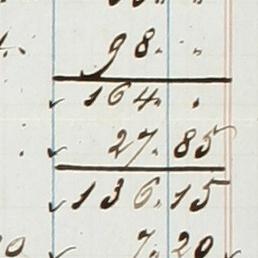 98. "
164. "
27. 85
136. 15
7. 20